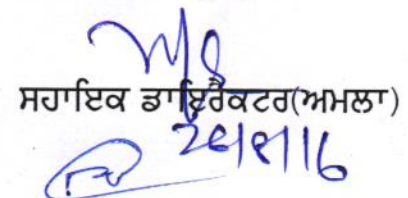 ਸਹਾਇਕ ਡਾਇਰੈਕਟਰ(ਅਮਲਾ)
26/8/16